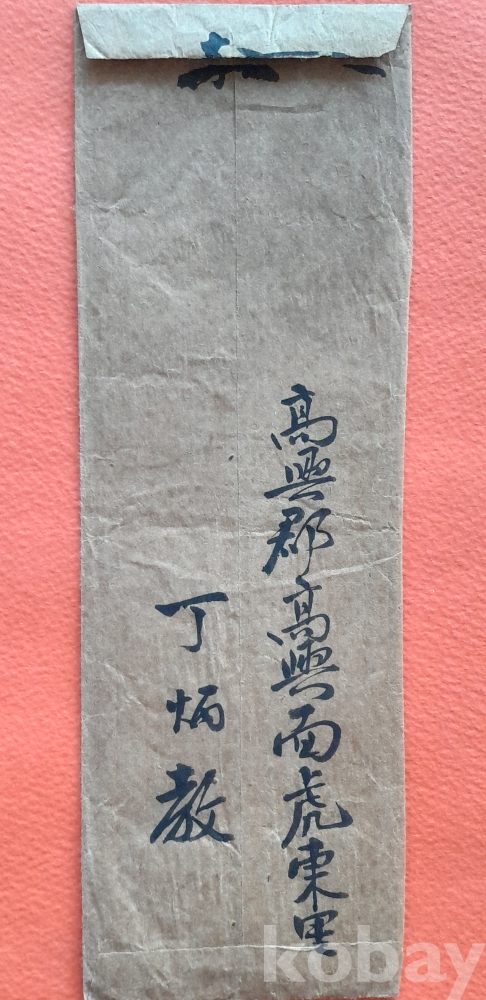 高興郡高興面虎東里
丁炳敎
kobay